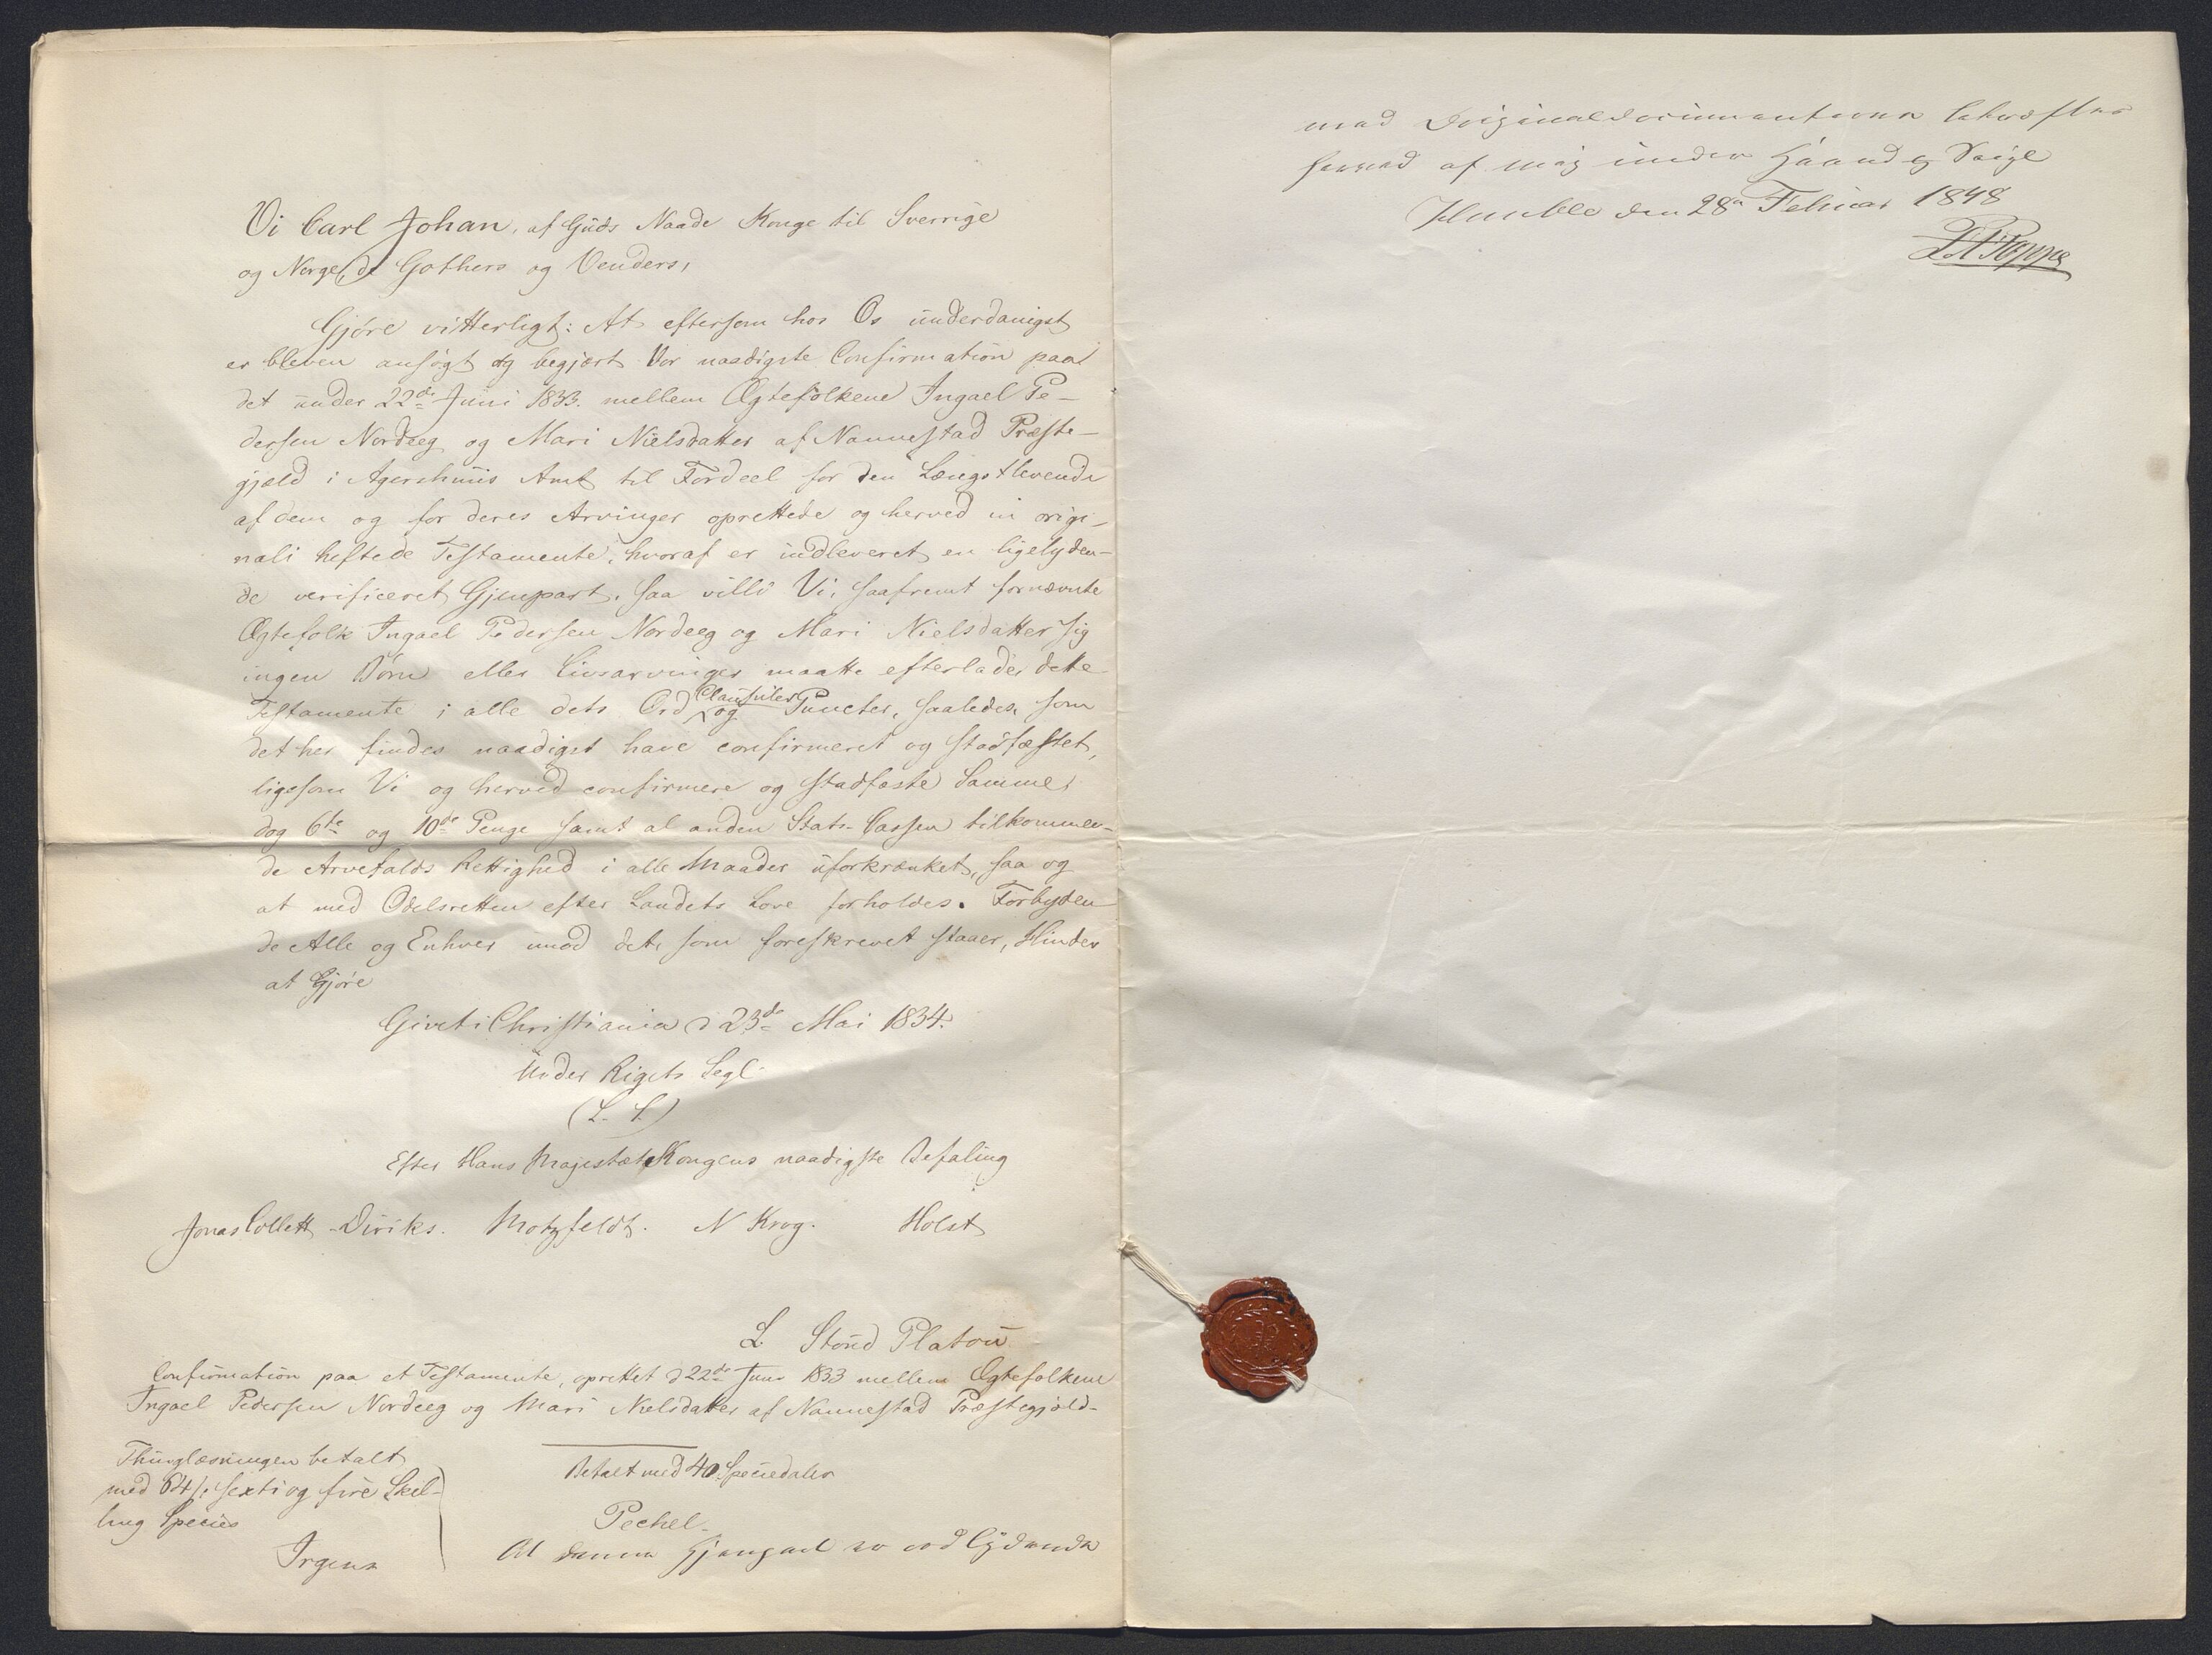 Vi Carl Johan, af Guds Naade Konge til Sverrige
og Norge, de Gothers og Venders,
Gjøre vitterligt: At eftersom hos Os underdanigst
er bleven ansøgt og begjært Vor naadigste Confirmation paa
det under 22de Juni 1833. mellem Ægtefolkene Ingael Pe-
dersen Nordeeg og Mari Nielsdatter af Nannestad Præste-
gjæld i Agershuus Amt til Fordeel for den Længstlevende
af dem og for deres Arvinger oprettede og herved in origi-
nali heftede Testamente, hvoraf er indleveret en ligelyden-
de verificeret Gjenpart, saa ville Vi, saafremt fornævnte
Ægtefolk Ingael Pedersen Nordeeg og Mari Nielsdatter sig
ingen Børn eller Livsarvinger maatte efterlade, dette
Testamente i alle dets Ord Clausuler og Puncter, saaledes, som
det her findes naadigst have confirmeret og stadfæstet,
ligesom Vi og herved confirmere og stadfæste Samme,
dog 6te og 10de Penge samt al anden Stats-Cassen tilkommen-
de Arvefalds Rettighed i alle Maader uforkrænket, saa og
at med Odelsretten efter Landets Love forholdes. Forbyden-
de Alle og Enhver imod det, som foreskrevet staaer, Hinder
at Gjøre
Givet i Christiania d 23de Mai 1834.
Under Rigets Segl
(L. S.)
Efter Hans Majestæt Kongens naadigste Befaling
Jonas Collett Diriks. Motzfeldt. N Krog. Holst
L Stoud Platou
Confirmation paa et Testamente, oprettet d 22de Juni 1833 mellem Ægtefolkene
Ingael Pedersen Nordeeg og Mari Nielsdatter af Nannestad Præstegjæld-
Thinglæsningen betalt
med 64 s: sexti og fire Skil-
ling Species
Irgens
Betalt med 40 Speciedaler
Pechel.
At denne Gjenpart er ordlydende
med Originaldocumenterne bekræftes
herved af mig under Haand og Seigl
den 28de Februar 1848